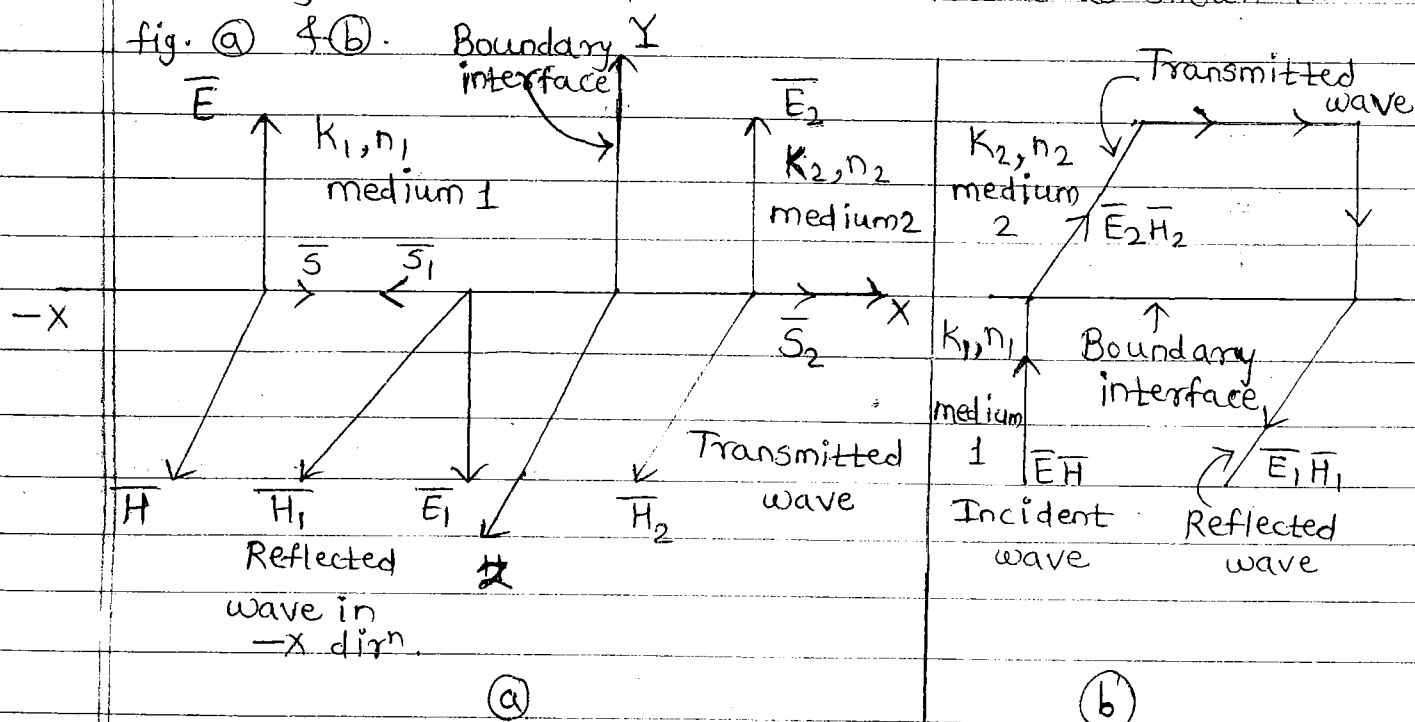 fig. ⓐ & ⓑ.
Boundary interface
Y
E̅
K₁, n₁
medium 1
E̅₂
K₂, n₂
medium 2
S̅
S̅₁
-X
X
S̅₂
H̅
H̅₁
E̅₁
H̅₂
Z
Transmitted
wave
Reflected
wave in
-X dirⁿ.
ⓐ
Transmitted
wave
K₂, n₂
medium
2
E̅₂ H̅₂
K₁, n₁
Boundary
interface
medium
1
E̅ H̅
Incident
wave
E̅₁ H̅₁
Reflected
wave
ⓑ